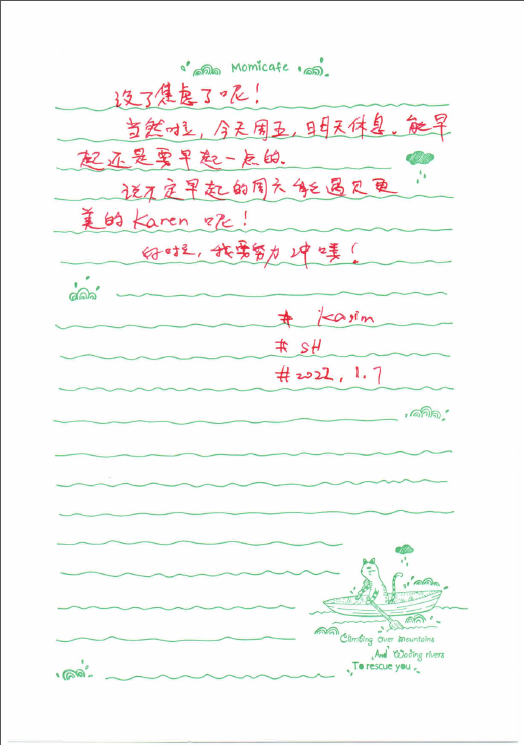 Momicafe
没了焦虑了呢!
当然啦,今天周五,明天休息。能早
起还是要早起一点的。
说不定早起的周六能遇见更
美的Karen呢!
好啦,我要努力冲噗!
# Karim
# SH
# 2022.1.7
Climbing Over mountains
And Wading rivers
To rescue you